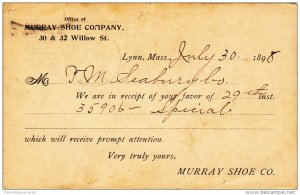 Office of
MURRAY SHOE COMPANY,
30 & 32 Willow St.
Lynn, Mass., July 30 1898
M T. M. Seabury & Co.
We are in receipt of your favor of 29th inst.
35906 - Special
which will receive prompt attention.
Very truly yours,
MURRAY SHOE CO.